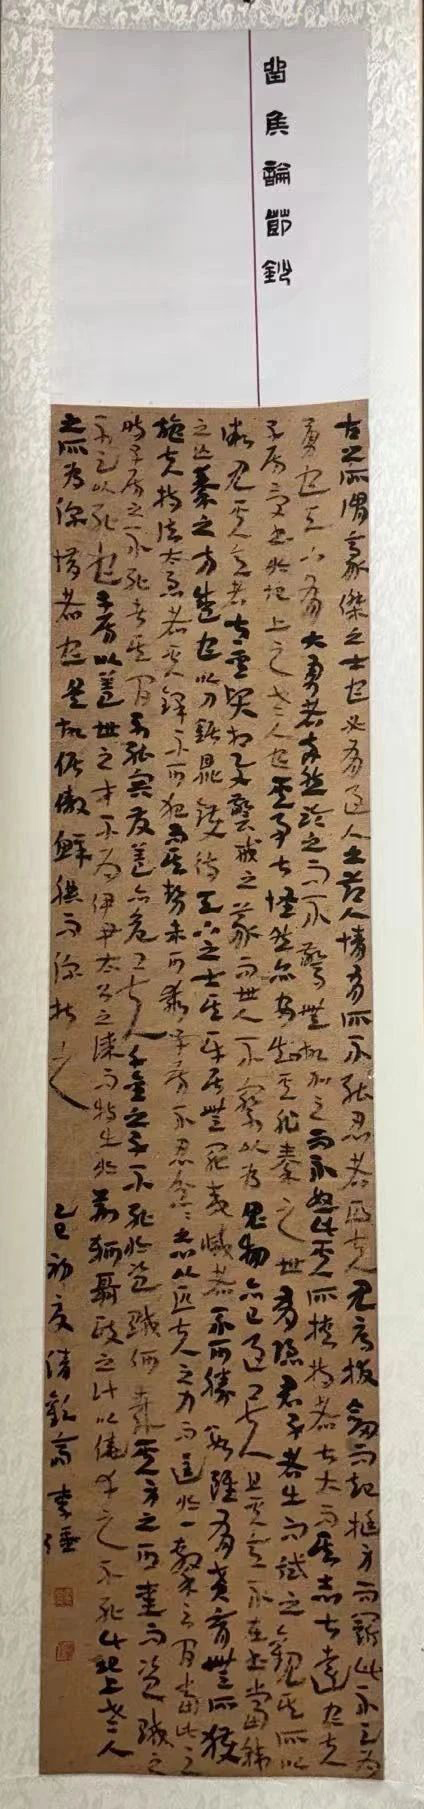 留侯論節鈔
古之所謂豪傑之士也必有過人之節人情有所不能忍者匹夫見辱拔劍而起挺身而鬥此不足為
勇也天下有大勇者卒然臨之而不驚無故加之而不怒此其所挾持者甚大而其志甚遠也夫
子房受書於圯上之老人也其事甚怪然亦安知其非秦之世有隱君子者出而試之觀其所以
微見其意者皆聖賢相與警戒之義而世人不察以為鬼物亦已過矣且其意不在書當韓
之亡秦之方盛也以刀鋸鼎鑊待天下之士其平居無罪夷滅者不可勝數雖有賁育無所獲
施夫持法太急者其鋒不可犯而其勢未可乘子房不忍忿忿之心以匹夫之力而逞於一擊之間當此之
時子房之不死者其間不能容髮蓋亦危已矣千金之子不死於盜賊何哉其身之可愛而盜賊之
不足以死也子房以蓋世之才不為伊尹太公之謀而特出於荊軻聶政之計以僥倖於不死此圯上老人
之所為深惜者也是故倨傲鮮腆而深折之
乙巳初夏